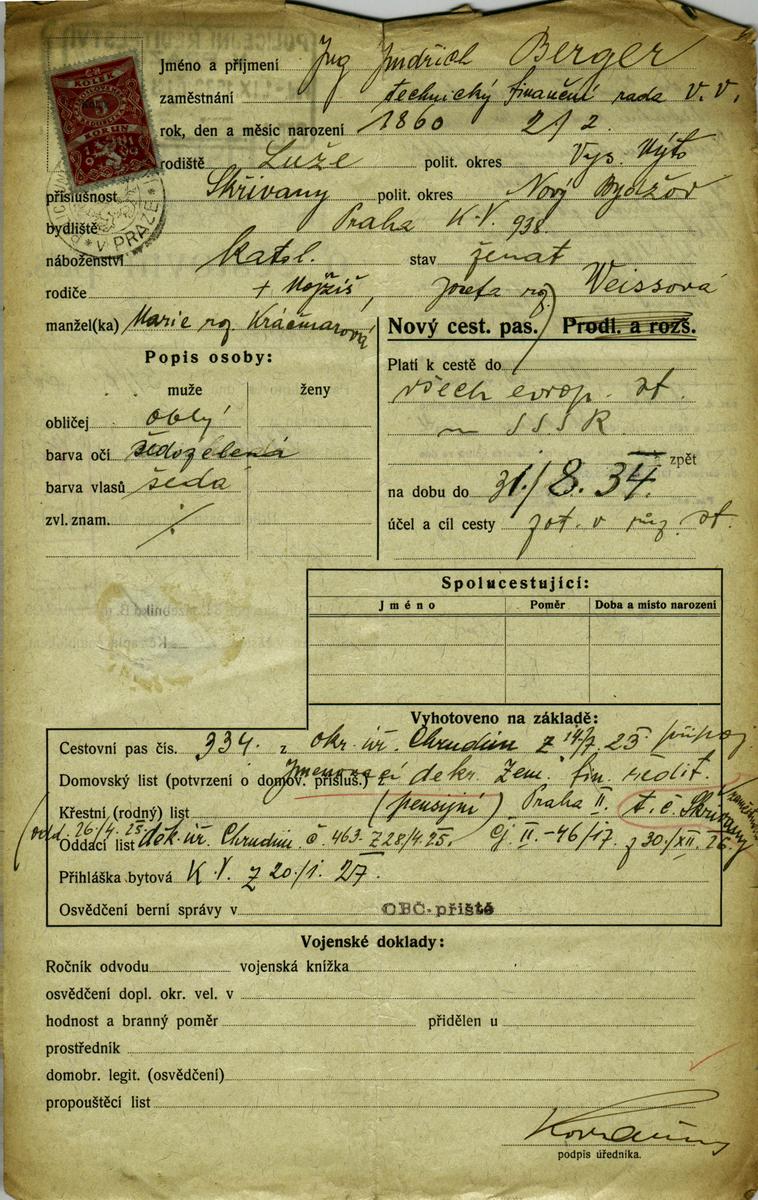 POLICEJNÍ ŘEDITELSTVÍ
KOLEK
KORUN
V PRAZE
Jméno a příjmení Ing Jindřich Berger
zaměstnání technický finanční rada v. v.
rok, den a měsíc narození 1860 21 2.
rodiště Luže polit. okres Vys. Mýto
příslušnost Skřivany polit. okres Nový Bydžov
bydliště Praha K. V. 938.
náboženství katol. stav ženat
rodiče + Mojžíš, Josefa roz. Weissová
manžel(ka) Marie roz. Kráčmarová
Nový cest. pas. Prodl. a rozš.
Popis osoby:
muže ženy
obličej oblý
barva očí šedozelená
barva vlasů šedá
zvl. znam. ./.
Platí k cestě do
všech evrop. st.
SSSR.
zpět
na dobu do 31./8. 34.
účel a cíl cesty pot. v růz. st.
Spolucestující:
Jméno Poměr Doba a místo narození
Vyhotoveno na základě:
Cestovní pas čís. 334. z okr. úř. Chrudim z 14/7. 25
Domovský list (potvrzení o domov. přísluš.) z Jmenovací dekr. Zem. fin. ředit.
Křestní (rodný) list (pensijní) Praha II. t. č. Skřivany
odd. 26/4. 25
Oddací list děk. úř. Chrudim. č. 463. z 28/4. 25. čj. II. -46/17. z 30./XII. 26.
Přihláška bytová K. V. z 20./1. 27.
Osvědčení berní správy v OBČ. příště
Vojenské doklady:
Ročník odvodu vojenská knížka
osvědčení dopl. okr. vel. v
hodnost a branný poměr přidělen u
prostředník
domobr. legit. (osvědčení)
propouštěcí list
podpis úředníka.